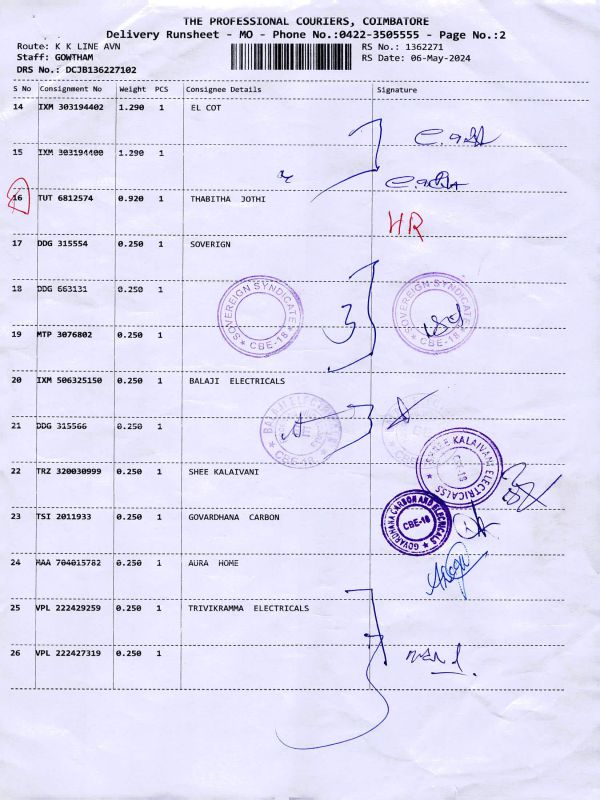 THE PROFESSIONAL COURIERS, COIMBATORE
Delivery Runsheet - MO - Phone No.:0422-3505555 - Page No.:2
Route: K K LINE AVN
RS No.: 1362271
Staff: GOWTHAM
RS Date: 06-May-2024
DRS No.: DCJB136227102
S No Consignment No Weight PCS Consignee Details Signature
14 IXM 303194402 1.290 1 EL COT
15 IXM 303194400 1.290 1
16 TUT 6812574 0.920 1 THABITHA JOTHI
HR
17 DDG 315554 0.250 1 SOVERIGN
18 DDG 663131 0.250 1
SOVEREIGN SYNDICATE ★ CBE-18 ★
3
SOVEREIGN SYNDICATE ★ CBE-18 ★
19 MTP 3076802 0.250 1
20 IXM 506325150 0.250 1 BALAJI ELECTRICALS
21 DDG 315566 0.250 1
22 TRZ 320030999 0.250 1 SHEE KALAIVANI
KALAIVANI ELECTRICALSS CBE-18
23 TSI 2011933 0.250 1 GOVARDHANA CARBON
GOVARDHANA CARBON AND ELECRICALS ★ CBE-18
24 MAA 704015782 0.250 1 AURA HOME
25 VPL 222429259 0.250 1 TRIVIKRAMMA ELECTRICALS
26 VPL 222427319 0.250 1